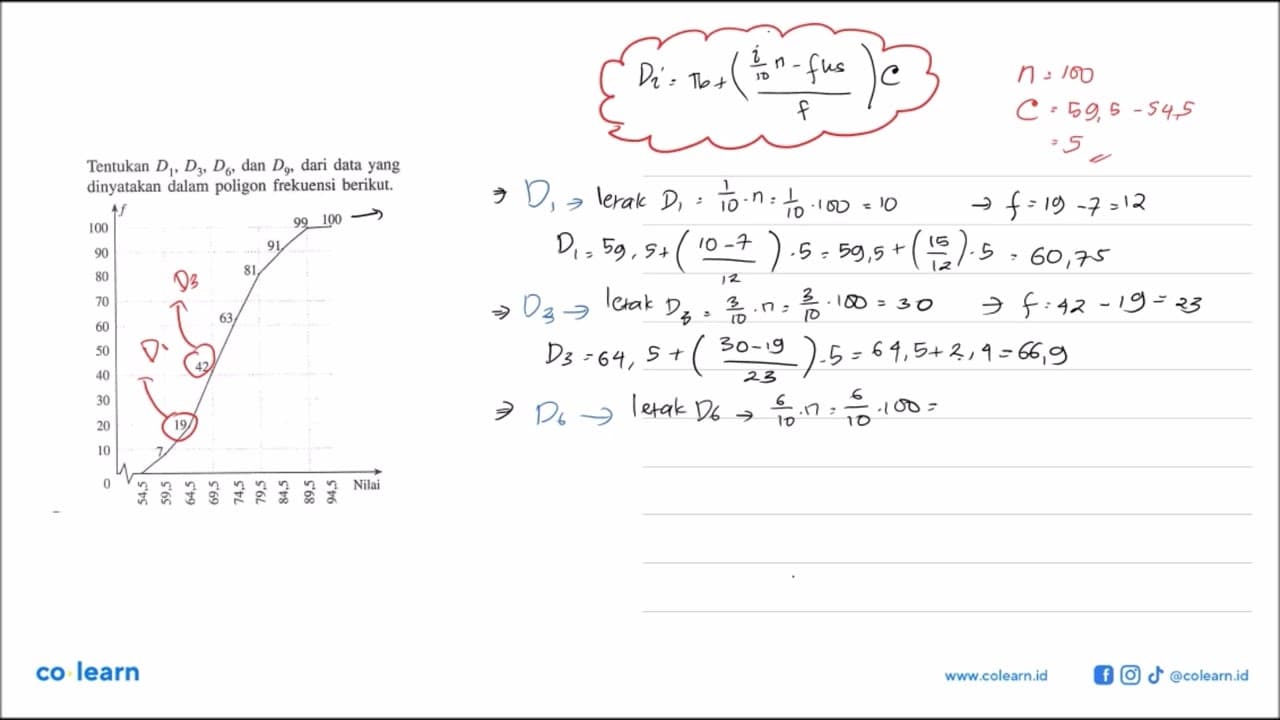 Di = Tb + ( (i/10 n - fks) / f ) C
n = 100
C = 59,5 - 54,5
= 5
Tentukan D₁, D₃, D₆, dan D₉, dari data yang
dinyatakan dalam poligon frekuensi berikut.
f
100
90
80
70
60
50
40
30
20
10
0
7
19
42
63
81
91
99
100
D₁
D3
54,5
59,5
64,5
69,5
74,5
79,5
84,5
89,5
94,5
Nilai
⇒ D₁ → lerak D₁ = 1/10 · n = 1/10 · 100 = 10 → f = 19 - 7 = 12
D₁ = 59,5 + ( (10 - 7) / 12 ) · 5 = 59,5 + ( 15/12 ) · 5 = 60,75
⇒ D₃ → lerak D₃ = 3/10 · n = 3/10 · 100 = 30 → f = 42 - 19 = 23
D₃ = 64,5 + ( (30 - 19) / 23 ) · 5 = 64,5 + 2,4 = 66,9
⇒ D₆ → lerak D₆ → 6/10 · n = 6/10 · 100 =
co learn
www.colearn.id
@colearn.id